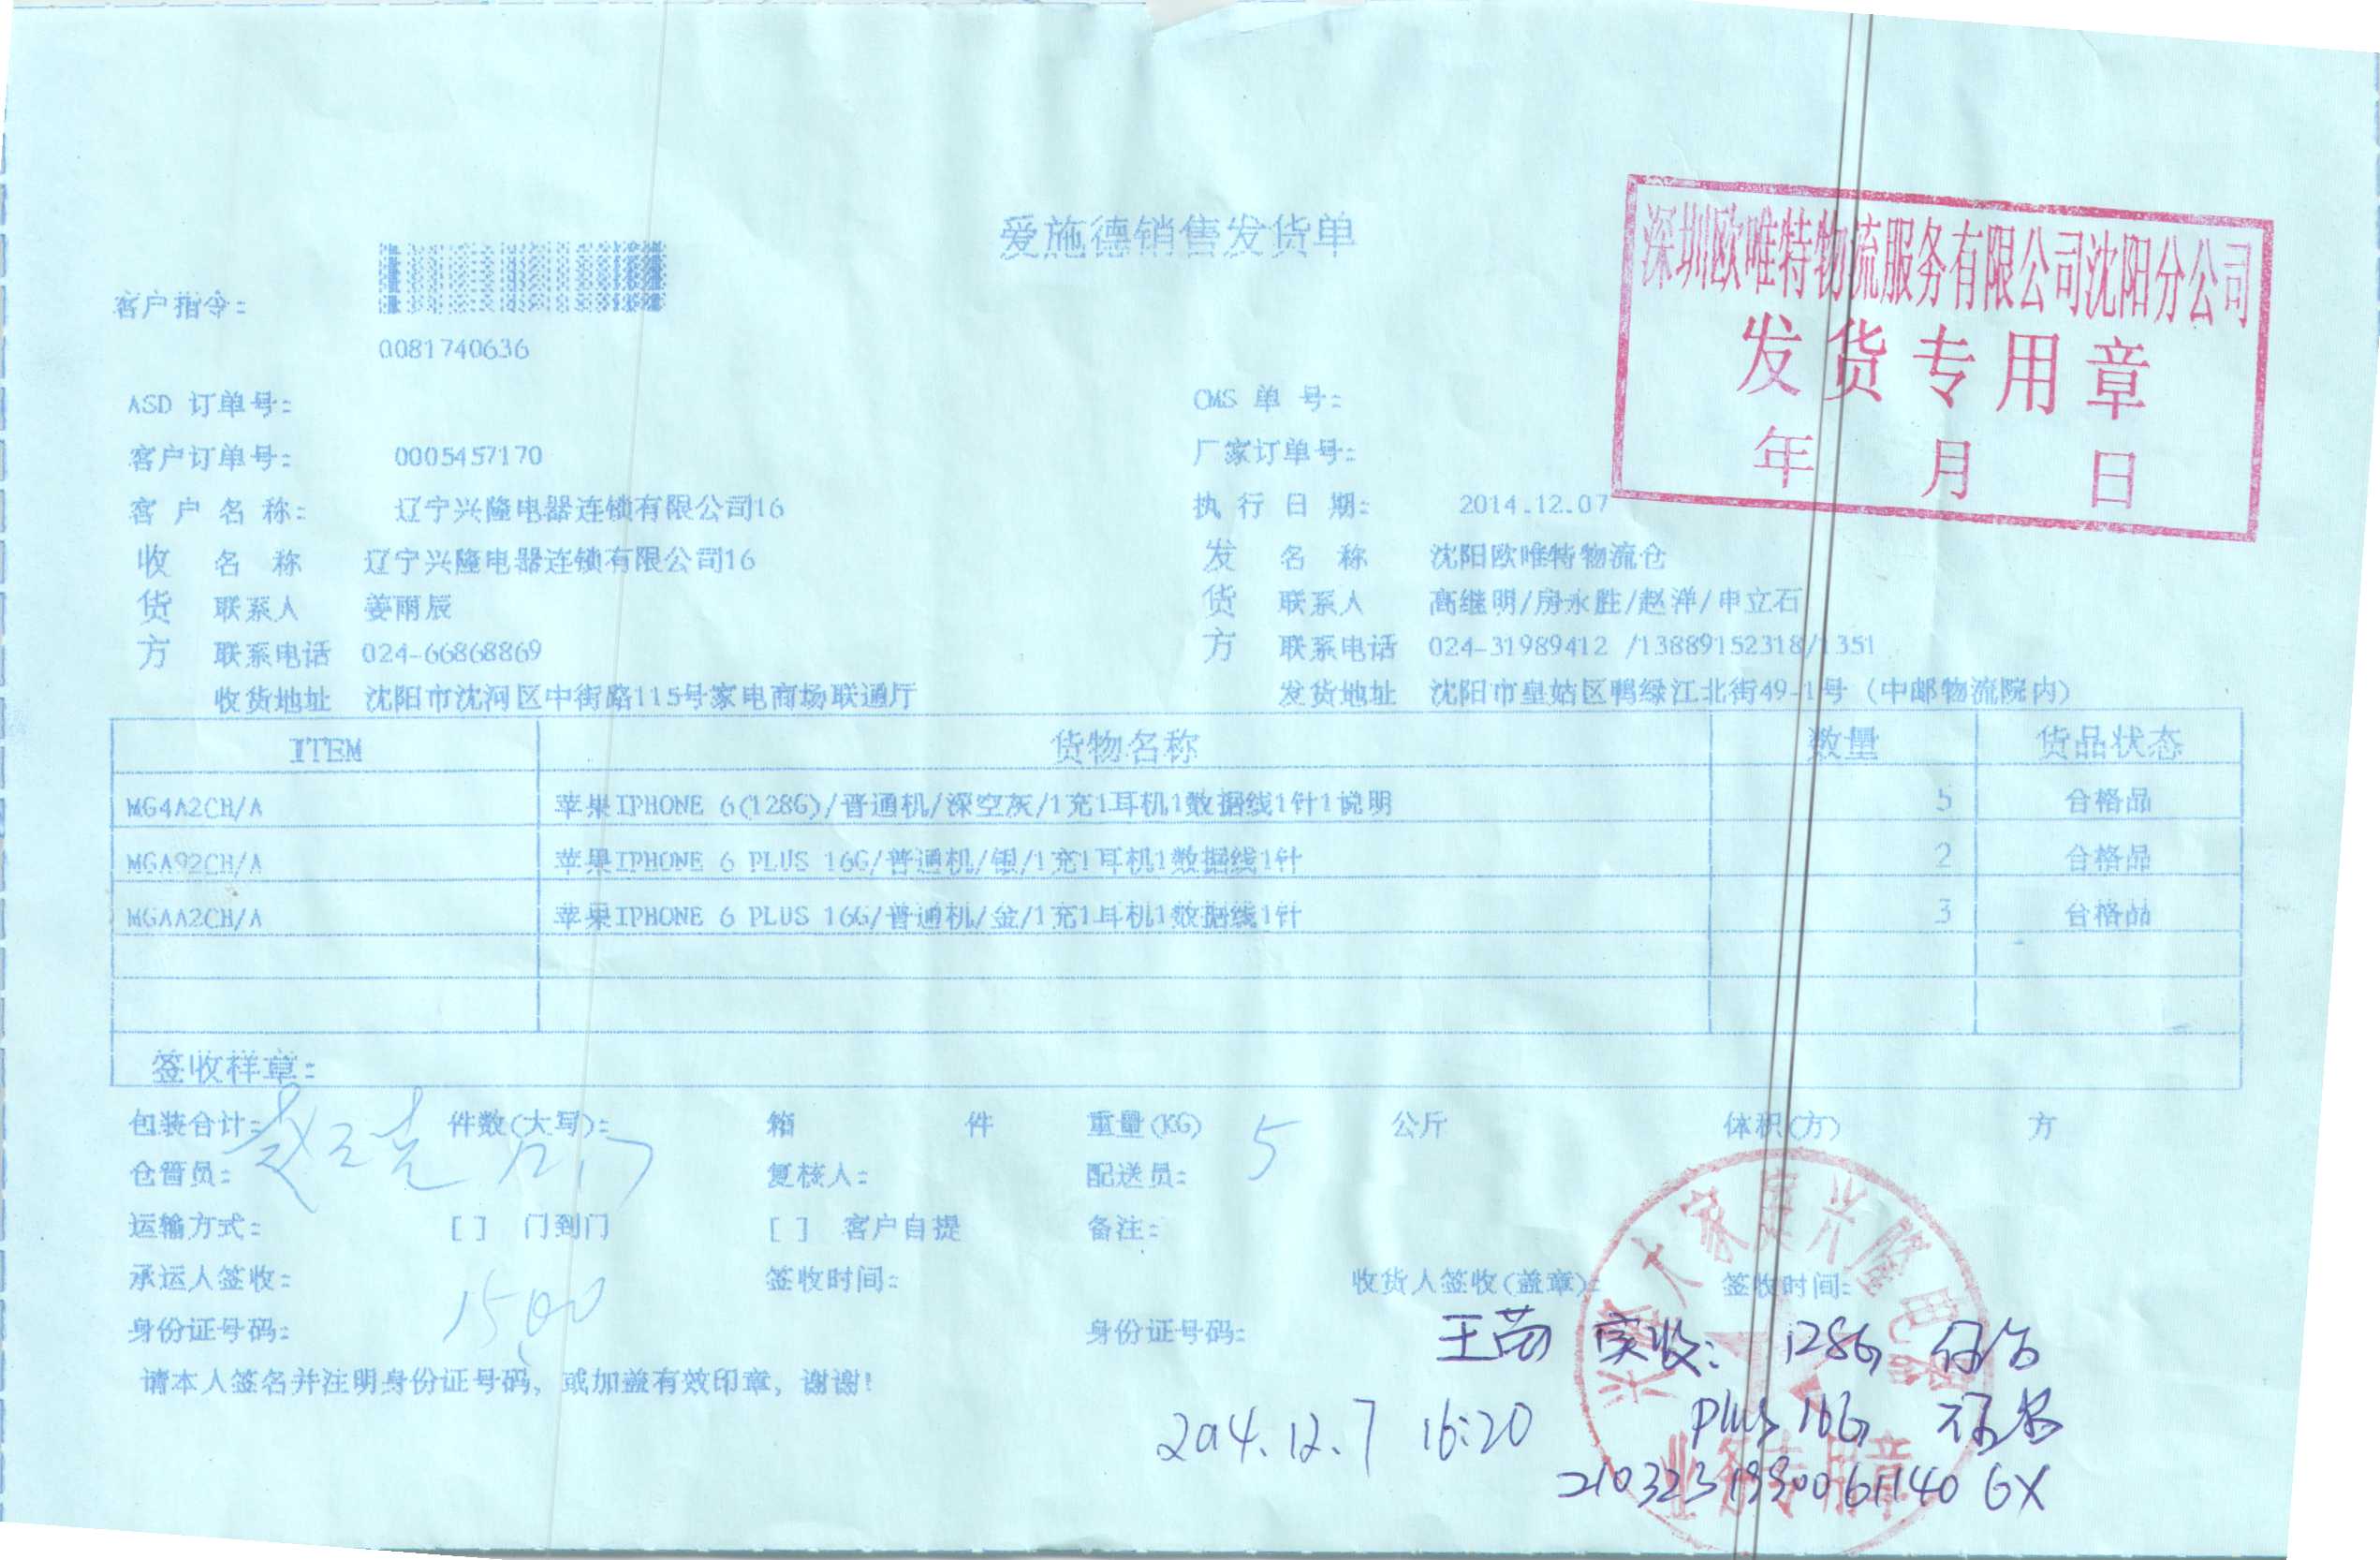 爱施德销售发货单
深圳欧唯特物流服务有限公司沈阳分公司
发货专用章
年 月 日
客户指令:
0081740636
ASD 订单号: CMS 单 号:
客户订单号: 0005457170 厂家订单号:
客 户 名 称: 辽宁兴隆电器连锁有限公司16 执 行 日 期: 2014.12.07
收 名 称 辽宁兴隆电器连锁有限公司16 发 名 称 沈阳欧唯特物流仓
货 联系人 姜雨辰 货 联系人 高继明/房永胜/赵洋/申立石
方 联系电话 024-66868869 方 联系电话 024-31989412 /13889152318/1351
收货地址 沈阳市沈河区中街路115号家电商场联通厅 发货地址 沈阳市皇姑区鸭绿江北街49-1号 (中邮物流院内)
ITEM 货物名称 数量 货品状态
MG4A2CH/A 苹果IPHONE 6(128G)/普通机/深空灰/1充1耳机1数据线1针1说明 5 合格品
MGA92CH/A 苹果IPHONE 6 PLUS 16G/普通机/银/1充1耳机1数据线1针 2 合格品
MGAA2CH/A 苹果IPHONE 6 PLUS 16G/普通机/金/1充1耳机1数据线1针 3 合格品
签收样章:
包装合计: 件数(大写): 箱 件 重量(KG) 5 公斤 体积(方) 方
仓管员: 复核人: 配送员:
运输方式: [ ] 门到门 [ ] 客户自提 备注:
承运人签收: 签收时间: 收货人签收(盖章): 签收时间:
1500
身份证号码: 身份证号码: 实收: 128G
请本人签名并注明身份证号码, 或加盖有效印章, 谢谢!
2014.12.7 16:20 plus 16G
兴隆大家庭兴隆电器
业务专用章